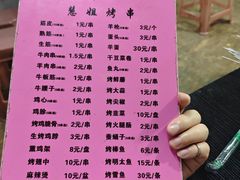 慧姐烤串
筋皮 1元/串
熟筋 1元/串
生筋 1元/串
牛肉串 1.5元/串
羊肉串 2元/串
牛板筋 1元/串
牛腰子 2元/串
鸡心 1元/串
鸡胗 1元/串
烤鸡脆骨 2元/串
生烤鸡脖 3元/串
重鸡架 8元/串
烤翅中 10元/串
麻辣烫 10元/盆
羊枪 3元/个
蛋头 3元/串
羊蛋 30元/串
干豆菜卷 1元/串
鱼丸 2元/串
烤鲜蘑 2元/串
烤大蒜 2元/串
烤尖椒 2元/串
烤韭菜 10元/串
烤火腿肠 2元/串
蚕蛹子 2元/串
烤棒鱼 6元/条
烤明太鱼 15元/条
烤鲁鱼 30元/条